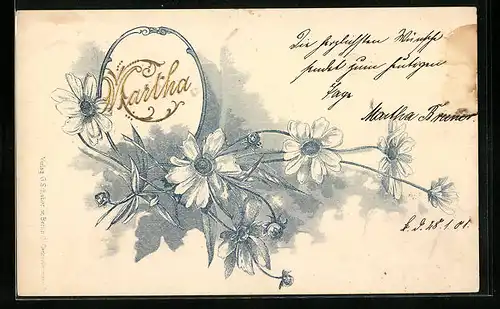 Martha
Die herzlichsten Wünsche
sendet zum heutigen
Tage
Martha
d. 28.1.01.
Verlag